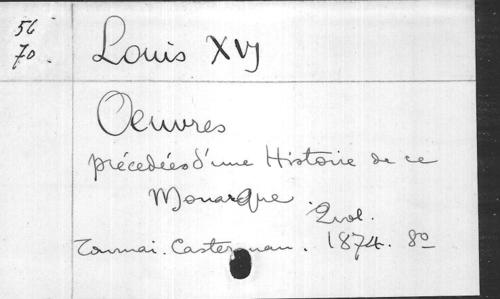 56
70.
Louis XVJ
Oeuvres
précedées d'une Histoire de ce
Monarque
2 vol.
Tournai. Casterman. 1874. 8º